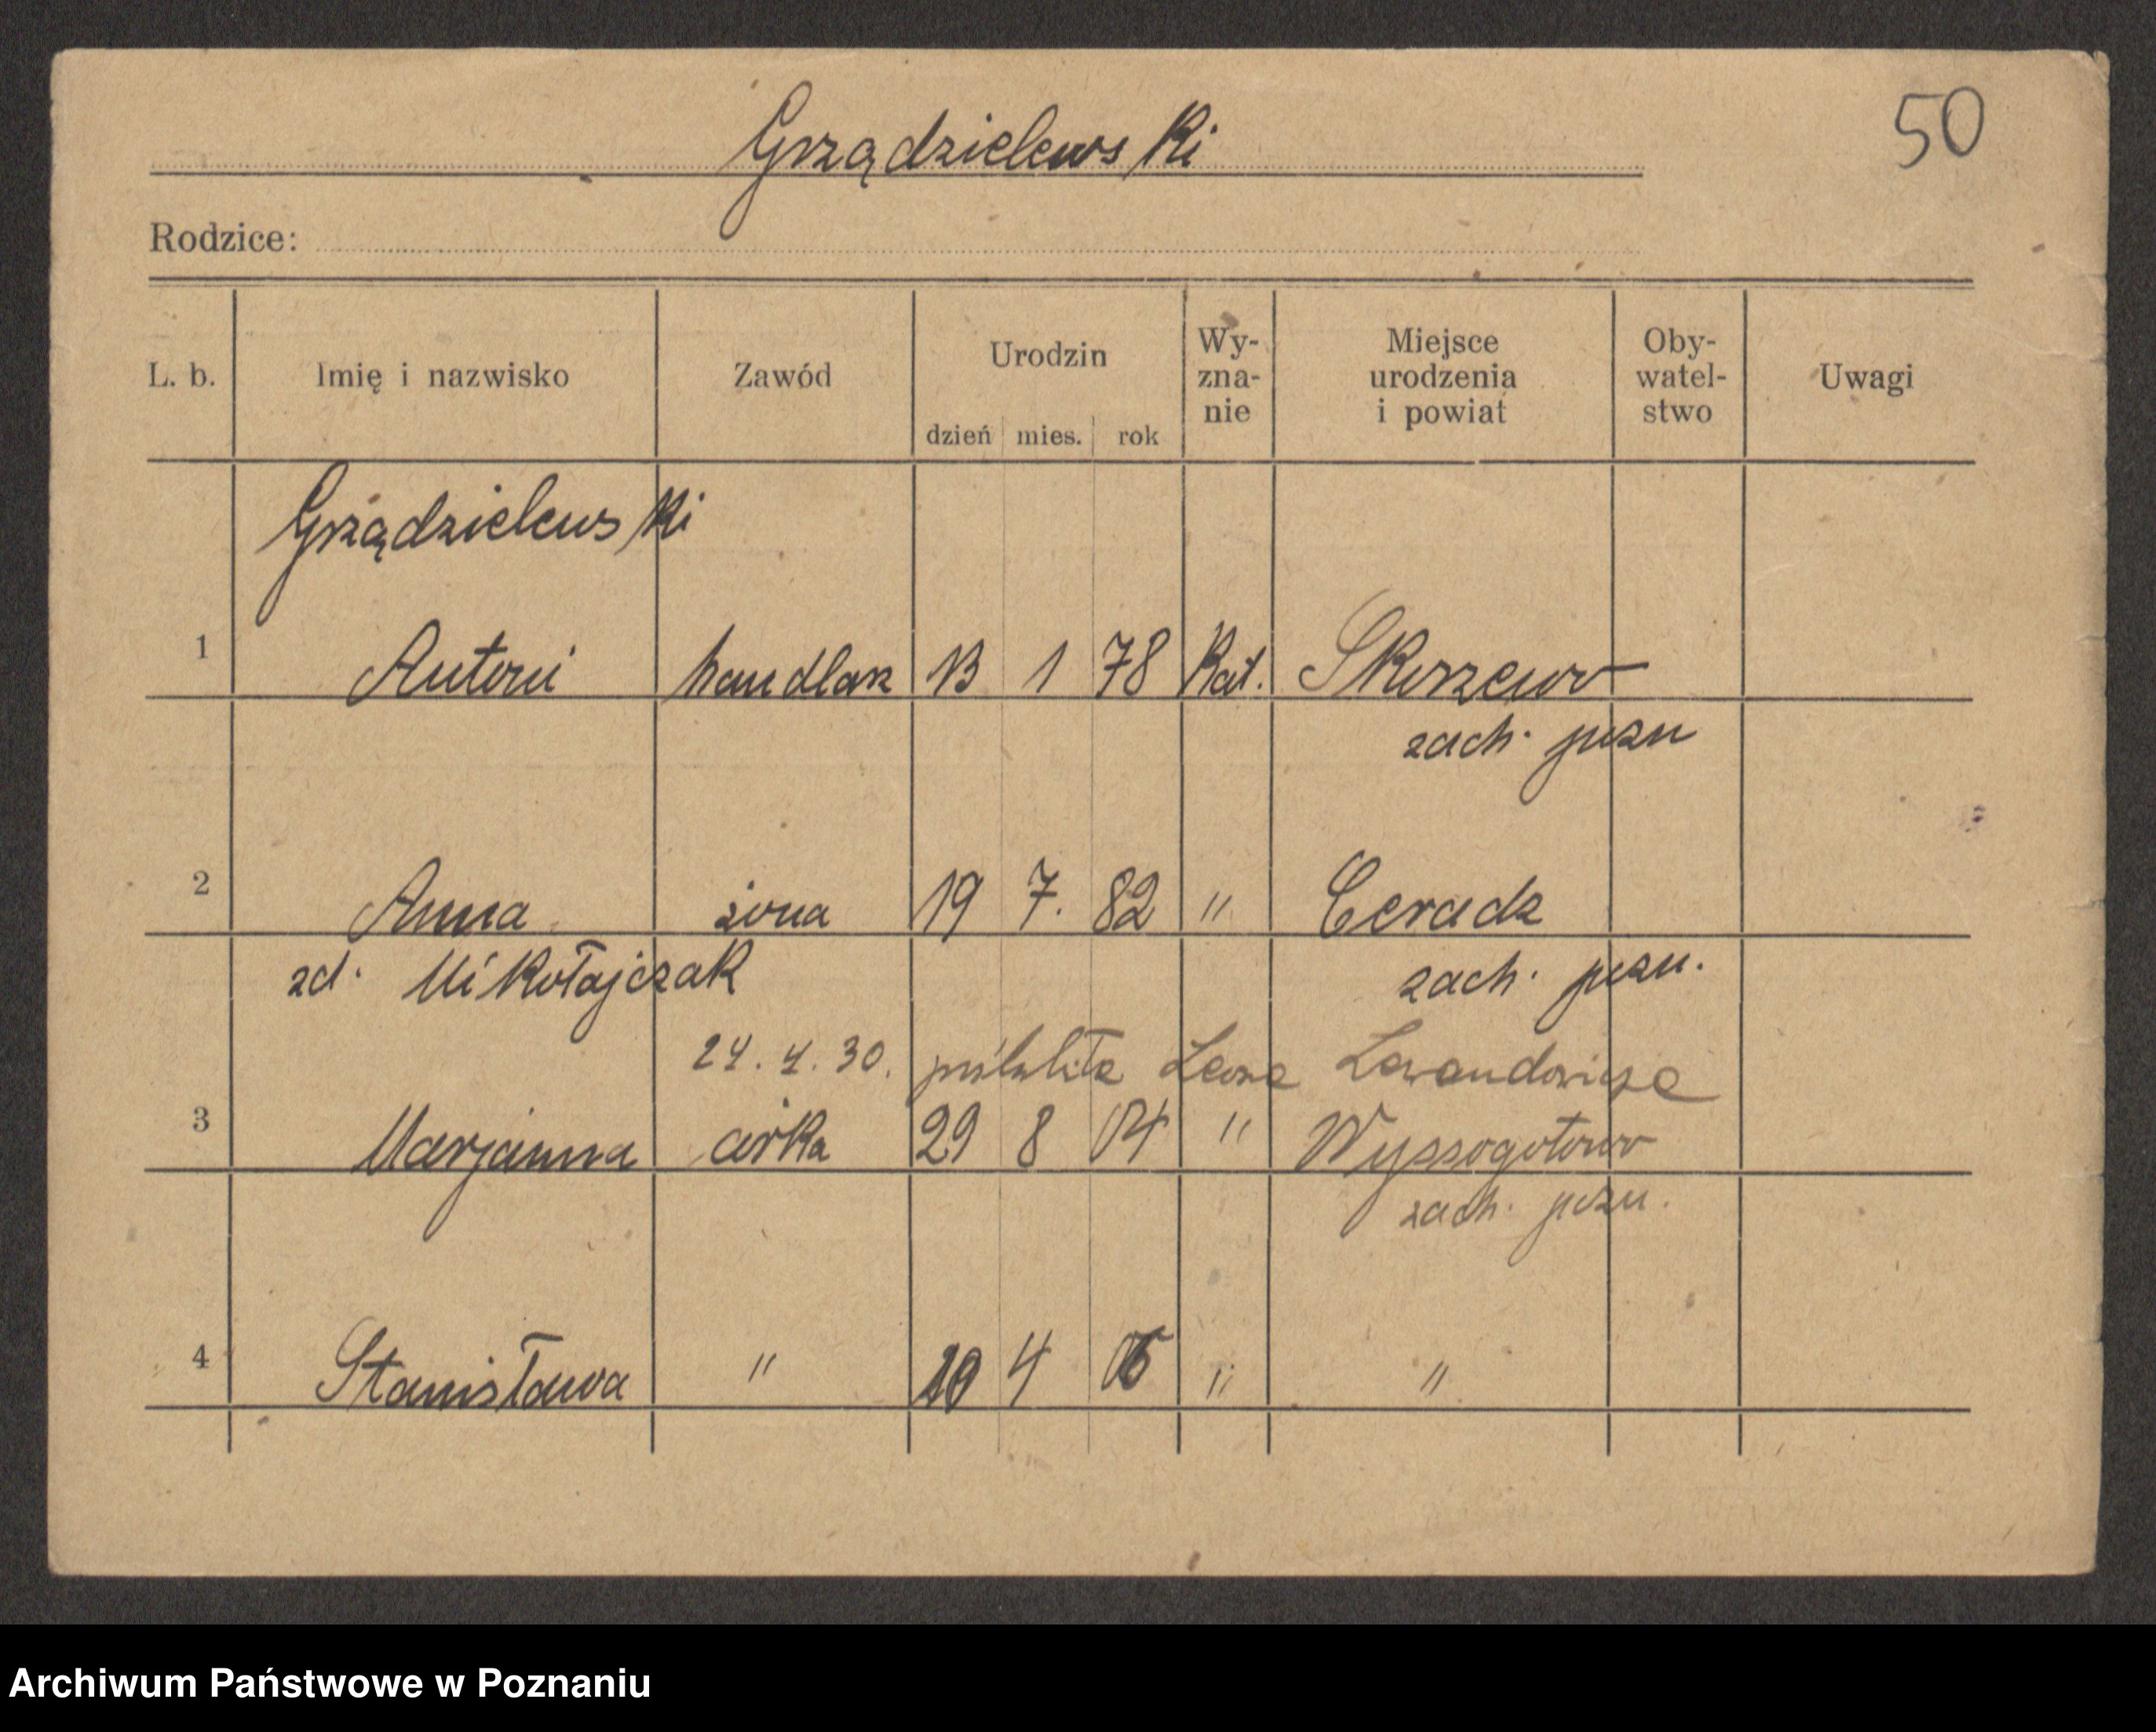 50
Grządzielewski
Rodzice:
L. b. Imię i nazwisko Zawód Urodzin dzień mies. rok Wy-zna-nie Miejsce urodzenia i powiat Oby-watel-stwo Uwagi
Grządzielewski
1 Antoni handlarz 13 1 78 Kat. Skórzewo
zach. pozn
2 Anna żona 19 7. 82 " Ceradz
zd. Mikołajczak zach. pozn.
24. 4. 30. poślubiła Leona Lewandowsk
3 Marjanna córka 29 8 04 " Wyssogotowo
zach. pozn.
4 Stanisława " 4 " "
Archiwum Państwowe w Poznaniu